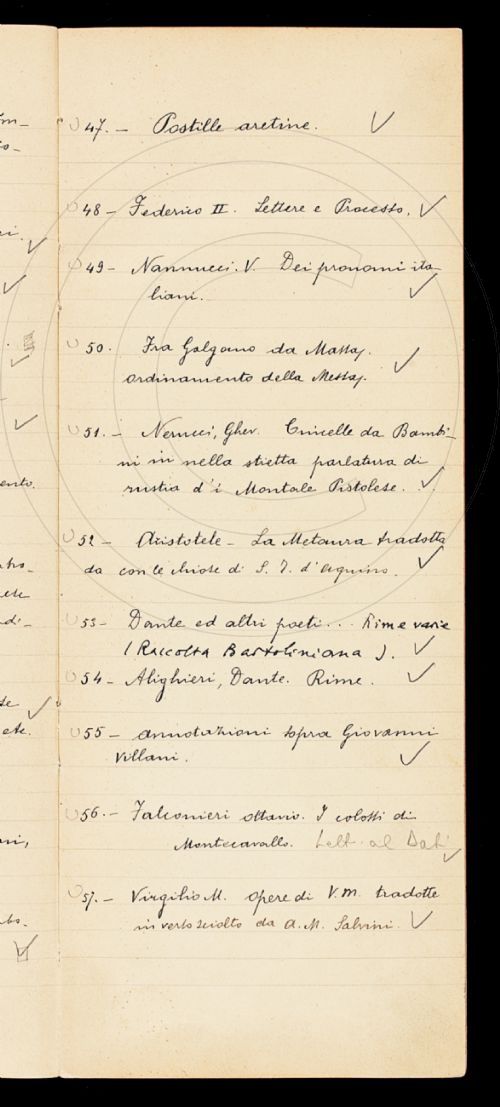 47. - Postille aretine.
48 - Federico II. Lettere e Processo.
49 - Nannucci. V. Dei pronomi ita-
liani.
50. Fra Galgano da Massa.
ordinamento della Messa.
51. - Nerucci, Gher. Cincelle da Bambi-
ni in nella stietta parlatura di
rustia d'i Montale Pistolese.
52 - Aristotele - La Metaura tradotta
da con le chiose di S. T. d'Aquino.
53 - Dante ed altri poeti... Rime varie
(Raccolta Bartoliniana).
54 - Alighieri, Dante. Rime.
55 - annotazioni sopra Giovanni
Villani.
56. - Falconieri ottavio. I colossi di
Montecavallo. Lett. al Dati
57. - Virgilio M. opere di V. M. tradotte
in verso sciolto da A. M. Salvini.